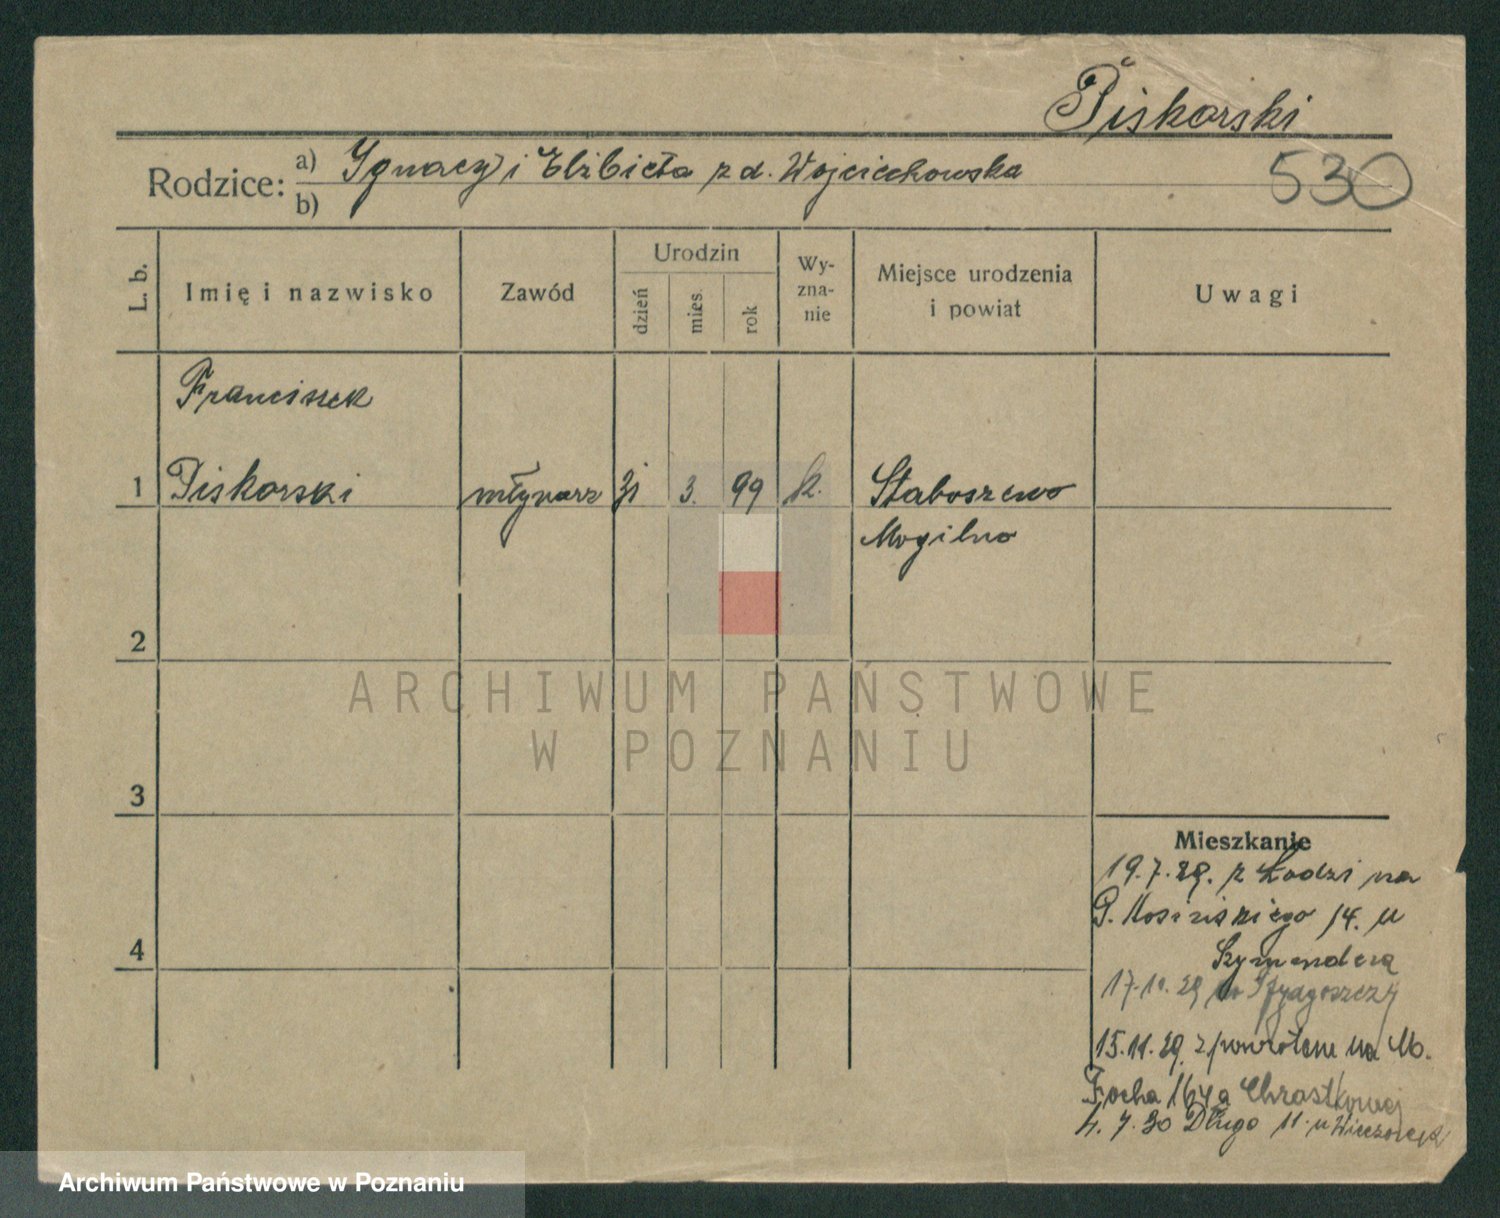 Piskorski
Rodzice: a) Ignacy i Elżbieta z d. Wojciechowska
b)
530
L. b.
Imię i nazwisko
Zawód
Urodzin
dzień
mies.
rok
Wy-
zna-
nie
Miejsce urodzenia
i powiat
Uwagi
Franciszek
1 Piskorski młynarz 31 3. 99 k. Staboszewo
Mogilno
2
ARCHIWUM PAŃSTWOWE
W POZNANIU
3
4
Mieszkanie
19.7.29. z Łodzi na
G. 14. u
17.10.29 do Bydgoszczy
15.11.29. z powrotem na M.
Focha 164a Chrastkowej
4.7.30 Długa 11 u Wieczorek
Archiwum Państwowe w Poznaniu